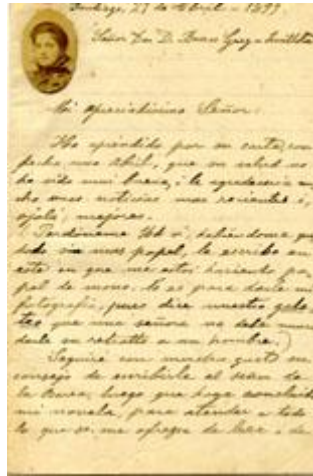 Santiago, 27 de Abril - 1899
Señor Don D.
Mi apreciadisimo Señor:
He aprendido por su carta, con
fecha Abril, que su salud no
ha sido mui buena, i le agradeceria
unas noticias mas recientes i,
ojalá, mejores.
Perdóneme Ud si, habiéndome
sin mas papel, le escribo en
este en que me estoi haciendo pa
pel de mono. No es para darle mi
fotografía, pues dice nuestro
que una señora no debe nunca
darle su retratto a un hombre.)
Seguiré con mucho gusto su
consejo de escribirle al señor de
la Barra, luego que haya concluido
mi novela, para atender a todo
lo que se me de